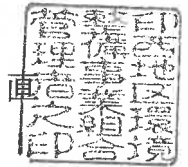 印西地区環境
整備事業組合
管理者之印
画